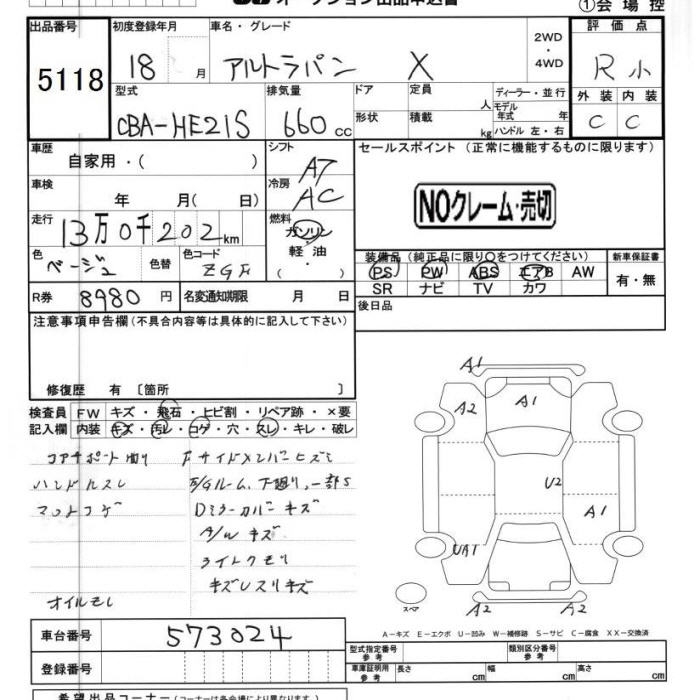 オークション出品申込書
①会場控
出品番号 初度登録年月 車名・グレード 2WD ・ 4WD 評価点
5118 18 月 アルトラパン X R 小
型式 排気量 ドア 定員 人 ディーラー・並行 外装 内装
CBA-HE21S 660 cc 形状 積載 kg モデル年式 年 ハンドル 左・右 C C
車歴 自家用・( ) シフト AT セールスポイント (正常に機能するものに限ります)
車検 年 月( 日) 冷房 AC
NOクレーム・売切
走行 13万0千202km 燃料 ガソリン 軽・油 ( ・ )
色 ベージュ 色替 色コード ZGF
装備品 (純正品に限り○をつけてください) 新車保証書
PS PW ABS エアB AW 有・無
SR ナビ TV カワ
R券 8980 円 名変通知期限 月 日 後日品
注意事項申告欄 (不具合内容等は具体的に記入して下さい)
修復歴 有 〔箇所 〕
検査員 FW キズ・飛石・ヒビ割・リペア跡・×要
記入欄 内装 キズ・汚レ・コゲ・穴・スレ・キレ・破レ
コアサポート曲り Fサイドメンバーヒズミ
ハンドルスレ 下廻り、一部S
マットコゲ Dミラーカバーキズ
A/Wキズ
ライトクモリ
オイルモレ
A1
A2 A1
U2
A1
UA1
A2 A2
スペア
A-キズ E-エクボ U-凹み W-補修跡 S-サビ C-腐食 XX-交換済
車台番号 573024
登録番号
型式指定番号 参考 類別区分番号 参考
車庫証明用 参考 長さ cm 幅 cm 高さ cm
希望出品コーナー (コーナーは各会場により異なります。)